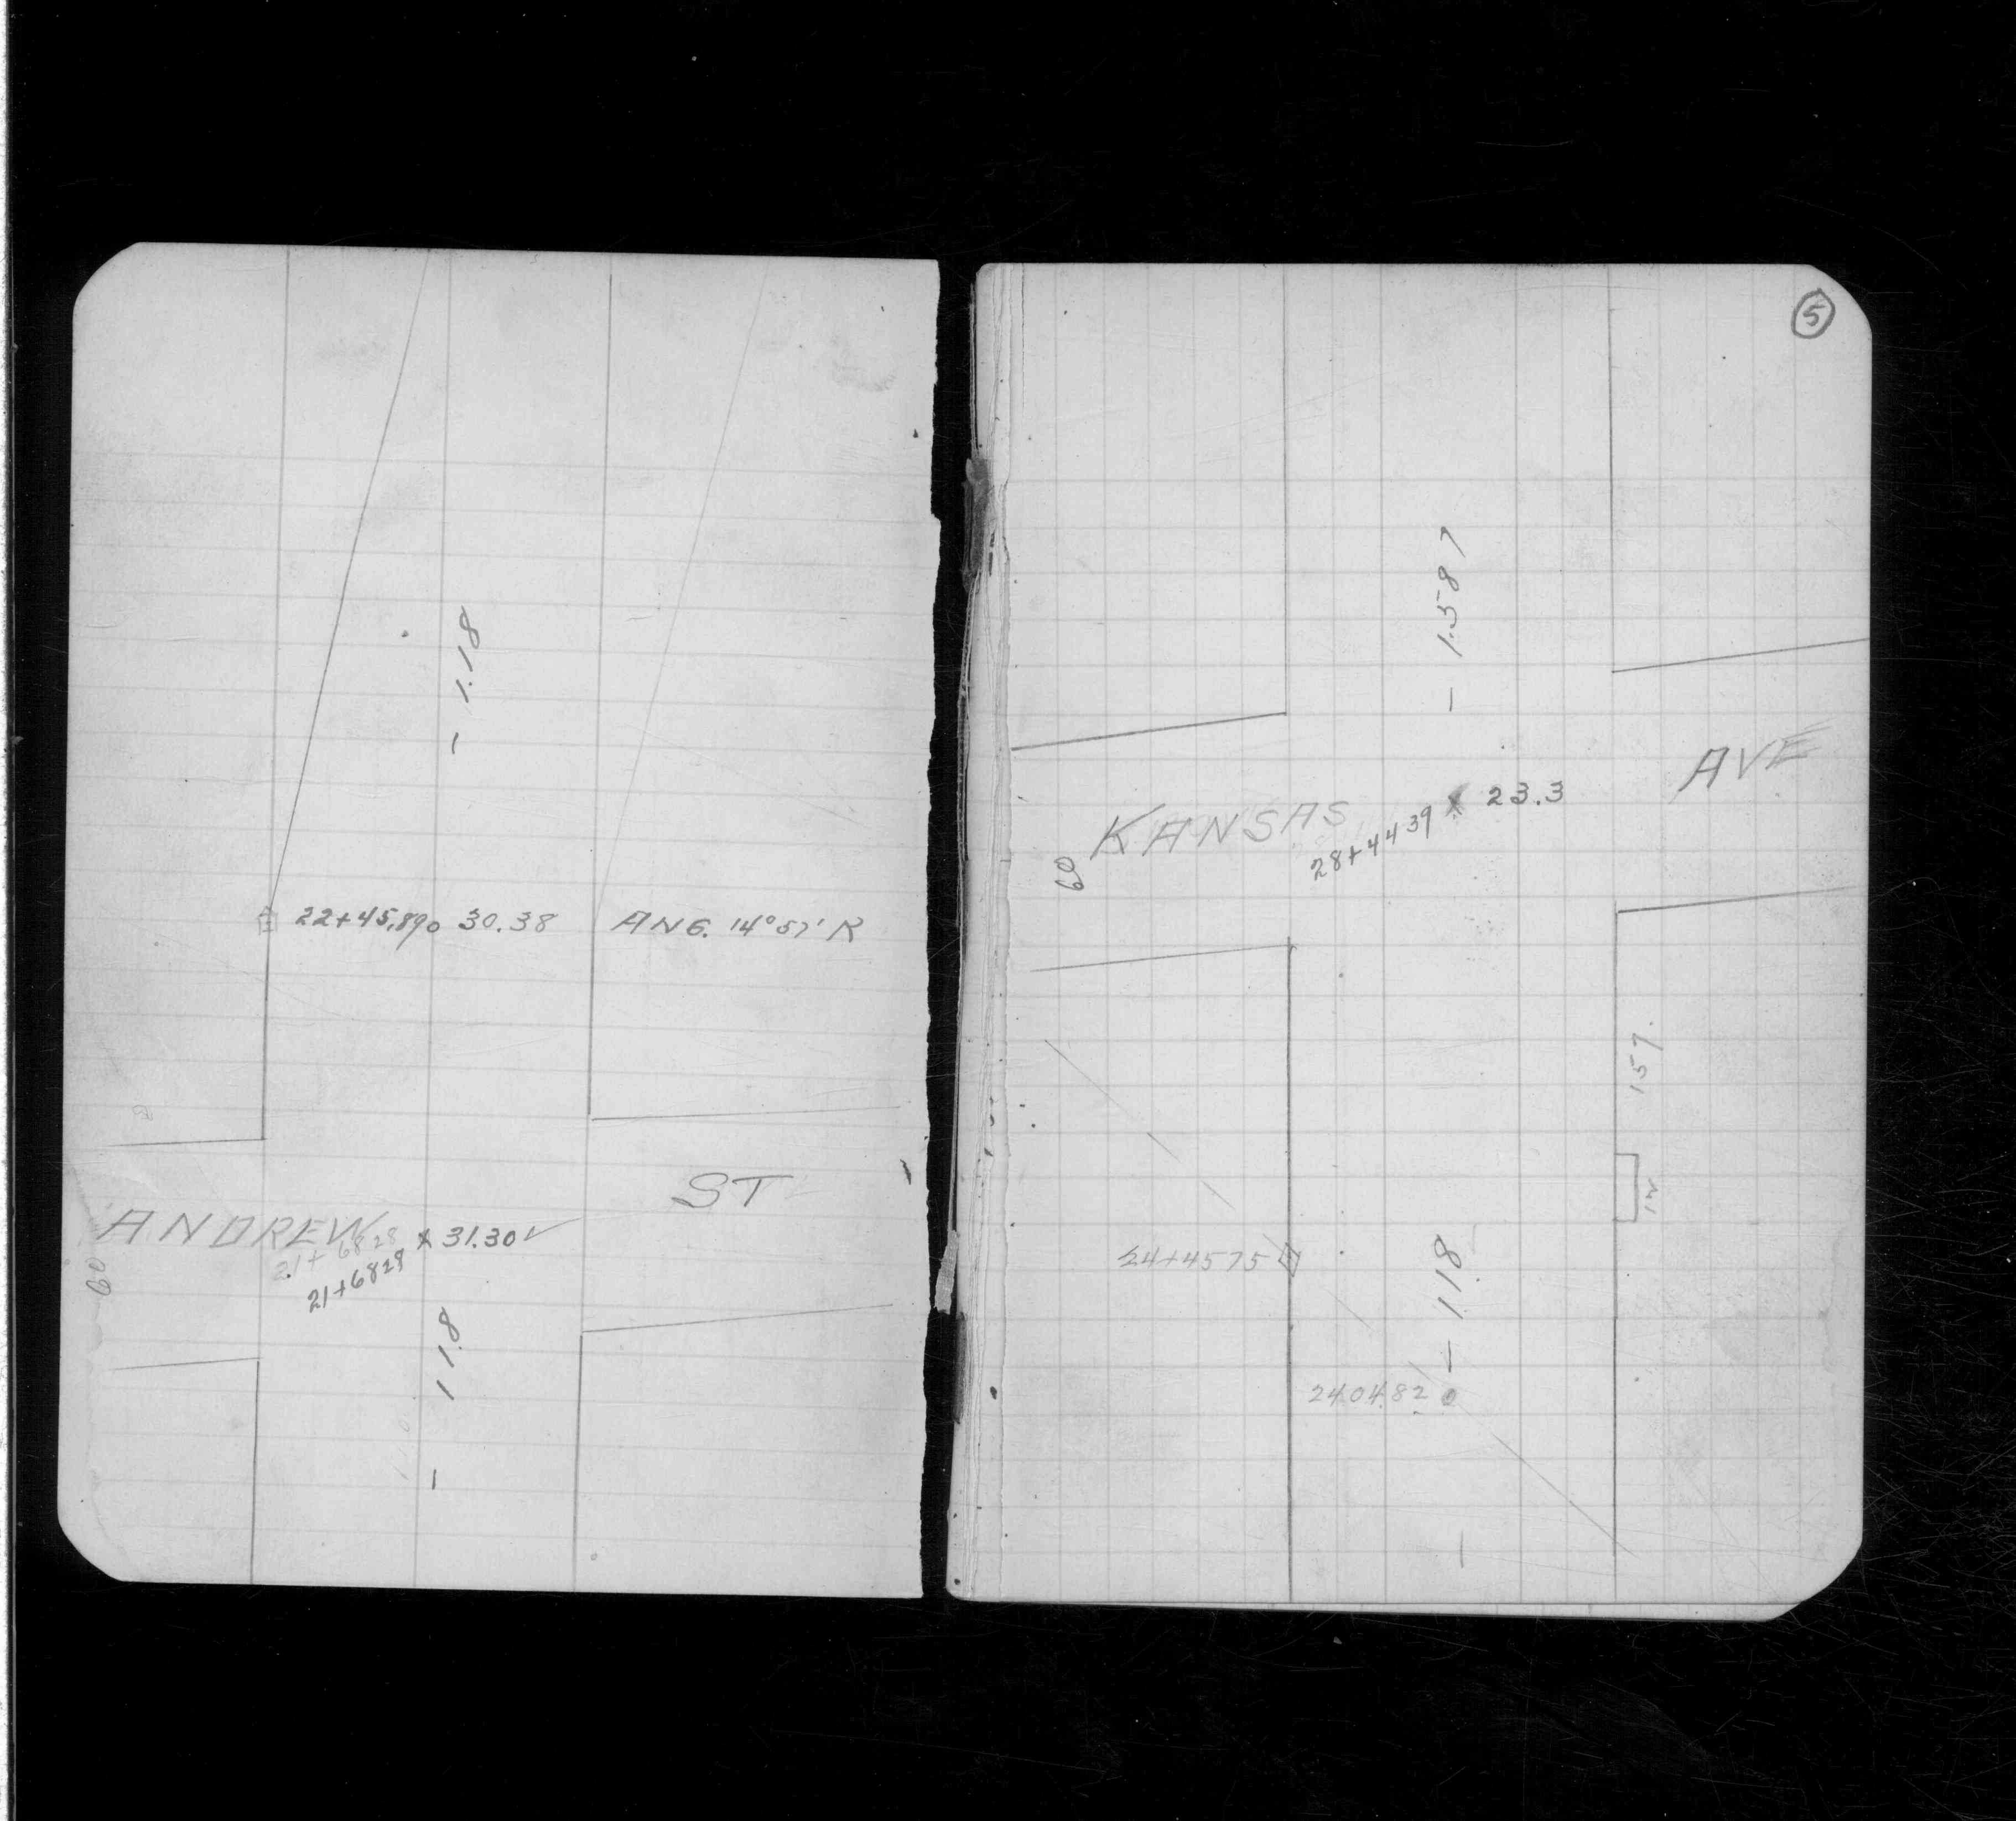 - 1.18
22+45.89 o 30.38 ANG. 14° 57' R
ANDREW ST
21+6828 x 31.30 ✓
21+6828
60
- 1.18
5
- 1.587
KANSAS AVE
28+4439 x 23.3
60
157.
24+4575
- 1.18
24 04.82 o